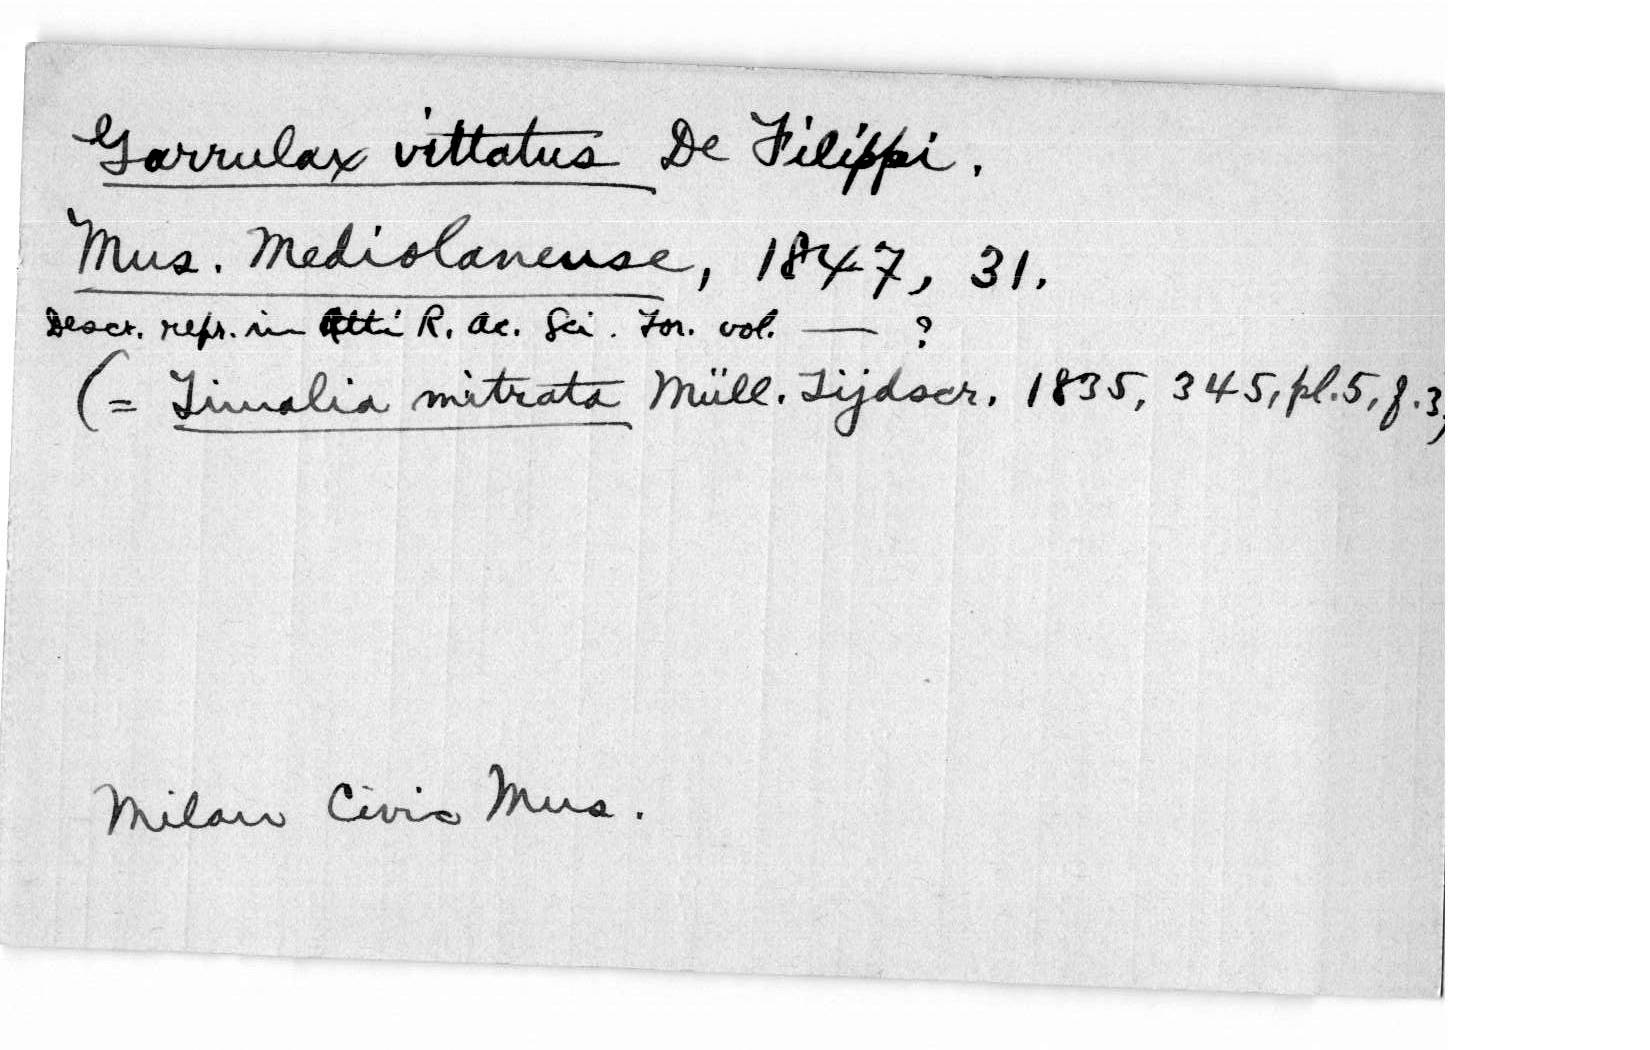 Garrulax vittatus De Filippi.
Mus. Mediolanense, 1847, 31.
Descr. repr. in Atti R. Ac. Sci. Tor. vol. — ?
(= Timalia mitrata Müll. Tijdscr. 1835, 345, pl. 5, f. 3)
Milan Civic Mus.